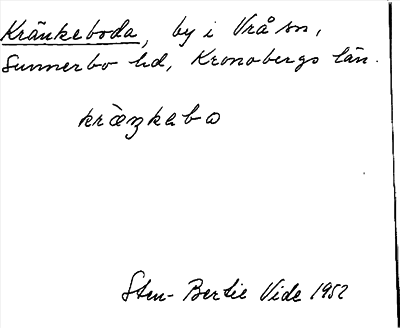 Kränkeboda, by i Vrå sn,
Sunnerbo hd, Kronobergs län.
kràŋkabo
Sten-Bertil Vide 1952